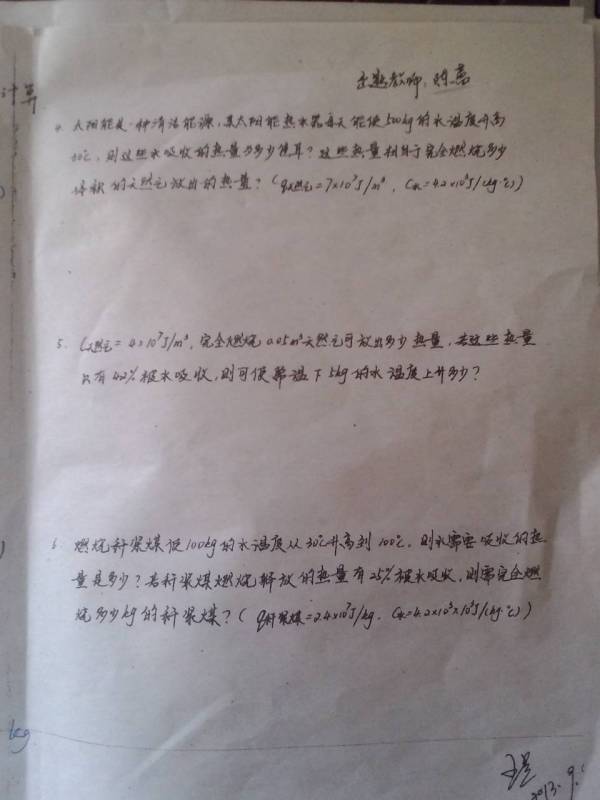 计算
出题教师:陈
4. 太阳能是一种清洁能源,某太阳能热水器每天能使500kg的水温度升高
30℃,则这些水吸收的热量为多少焦耳?这些热量相当于完全燃烧多少
体积的天然气放出的热量?(q天然气=7×10⁷J/m³,C水=4.2×10³J/(kg·℃))
5. q天然气=4×10⁷J/m³,完全燃烧0.05m³天然气可放出多少热量,若这些热量
只有42%被水吸收,则可使常温下5kg的水温度上升多少?
6. 燃烧秆浆煤使100kg的水温度从30℃升高到100℃,则水需要吸收的热
量是多少?若秆浆煤燃烧释放的热量有25%被水吸收,则需完全燃
烧多少kg的秆浆煤?(q秆浆煤=2.4×10⁷J/kg,C水=4.2×10³×10³J/(kg·℃))
kg
2013.9.